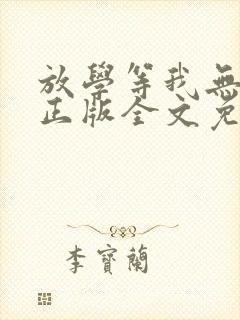 放學等我無
正版全文免
李寶蘭